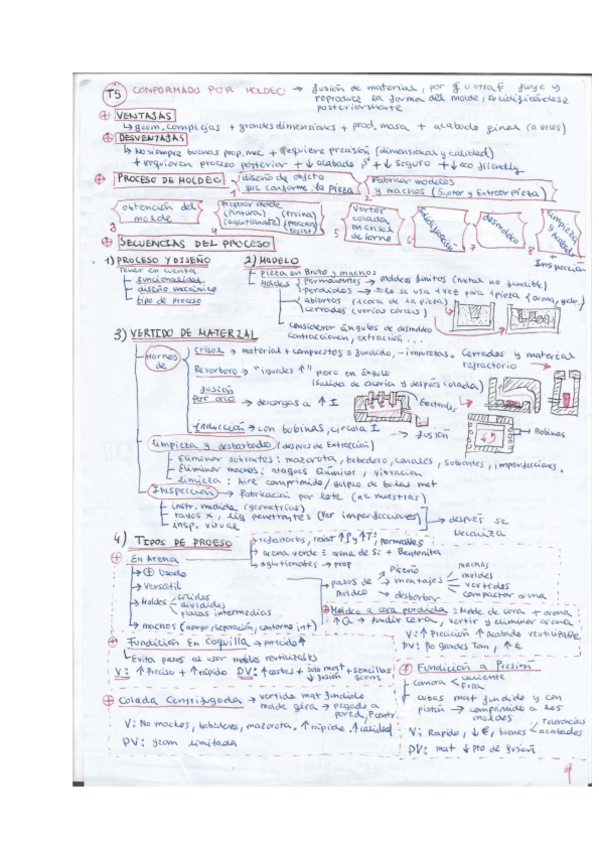 T5 CONFORMADO POR MOLDEO → fusión de materiales, por g u otra F fluye y
reproduce la forma del molde, solidificándose
posteriormente
⊕ VENTAJAS
↳ geom. complejas + grandes dimensiones + prod. masa + acabado final (a veces)
⊕ DESVENTAJAS
↳ No siempre buenas prop. mec + Requiere precisión (dimensional y calidad)
+ requieren proceso posterior + ↓ acabado + ↓ seguro + ↓ eco friendly
⊕ PROCESO DE MOLDEO
diseño de objeto
que conforme la pieza
1
Fabricar modelos
y machos
2
obtención del
molde
3
Preparar molde
(pintura) (resina)
(aglutinante)
4
Verter
colada
en crisol
de horno
5
Solidificación
6
desmoldeo
7
limpieza
y acabado
8
+
Inspección
⊕ SECUENCIAS DEL PROCESO
1) PROCESO Y DISEÑO
Tener en cuenta
funcionalidad
diseño mecánico
tipo de proceso
2) MODELO
pieza en Bruto y machos
Moldes
permanentes → moldeos finitos (metal no fundible)
perdidos → sólo se usa 1 vez para 1 pieza (arena, yeso)
abiertos (1 cara de la pieza)
cerrados (varias caras)
considerar ángulos de desmoldeo
contracciones, extracción ...
3) VERTIDO DE MATERIAL
Hornos
de
crisol → material + compuestos = fundido, - impurezas. Cerrados y material
refractorio
Reverbero → "iguales ↑" pero en ángulo
(salida de escoria y después colada)
fusión
por arco → descargas a ↑ I
Electrodos
inducción → con bobinas, circula I → fusión
Bobinas
limpieza y desbarbado (después de Extracción)
Eliminar sobrantes: mazarota, bebedero, canales, sobrantes, imperfecciones.
Eliminar machos: ataques Químicos, vibración
limpieza: Aire comprimido/golpeo de bolas met
INSPECCIÓN → Fabricación por lote (a muestras)
instr. medida (geometrías)
rayos x, líq penetrantes (Ver imperfecciones)
insp. visual
→ después se
mecaniza
4) TIPOS DE PROCESO
refractarios, resist ↑P y ↑Tª, permeables
arena verde = arena de Si + Bentonita
aglutionantes → prop
⊕ En Arena
→ ⊕ Usado
→ Versátil
→ Moldes
sólidos
divididos
placas intermedias
→ machos (apoyo, separación, contorno int)
pasos de
moldeo
diseño
montajes
desbarbar
machos
moldes
vertidos
compactar arena
⊕ Moldeo a cera perdida = Molde de cera + arena
↑Q → fundir cera, vertir y eliminar arena
V: ↑ Precisión ↑ acabado reutilizable
DV: No grandes Tam, ↑ €
⊕ Fundición En Coquilla → parecido ↑
Evita pasos al usar moldes reutilizables
V: ↑ Preciso + ↑ rápido DV: ↑ costes + solo mat ↓ fusión + sencillas geom
⊕ Fundición a Presión
camara
caliente
Fria
cubas mat fundido y con
pistón → comparando a los
moldes
V: Rapido, ↓ €, buenos
tolerancias
acabados
DV: mat ↓ pto de fusión
⊕ Colada Centrifugada → vertido mat fundido
molde gira → pegado a
pared, F centr.
V: No machos, bebederos, mazarota, ↑ rápido, ↑ calidad
DV: geom limitada